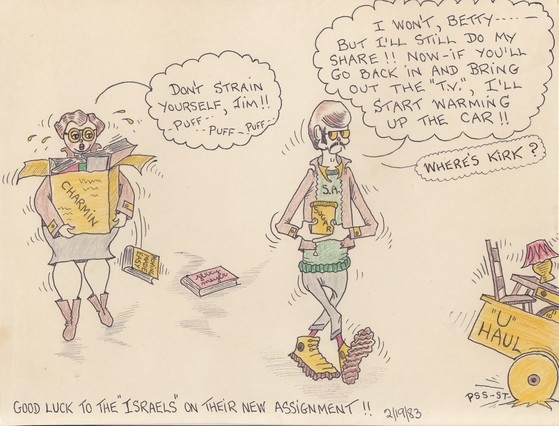 DON'T STRAIN
YOURSELF, JIM!!
PUFF--
--PUFF-PUFF--
I WON'T, BETTY-----
BUT I'LL STILL DO MY
SHARE!! NOW-IF YOU'LL
GO BACK IN AND BRING
OUT THE "T.V.", I'LL
START WARMING
UP THE CAR!!
WHERE'S KIRK?
CHARMIN
S.A.
"U"
HAUL
PSS-ST
GOOD LUCK TO THE "ISRAELS" ON THEIR NEW ASSIGNMENT!! 2/19/83